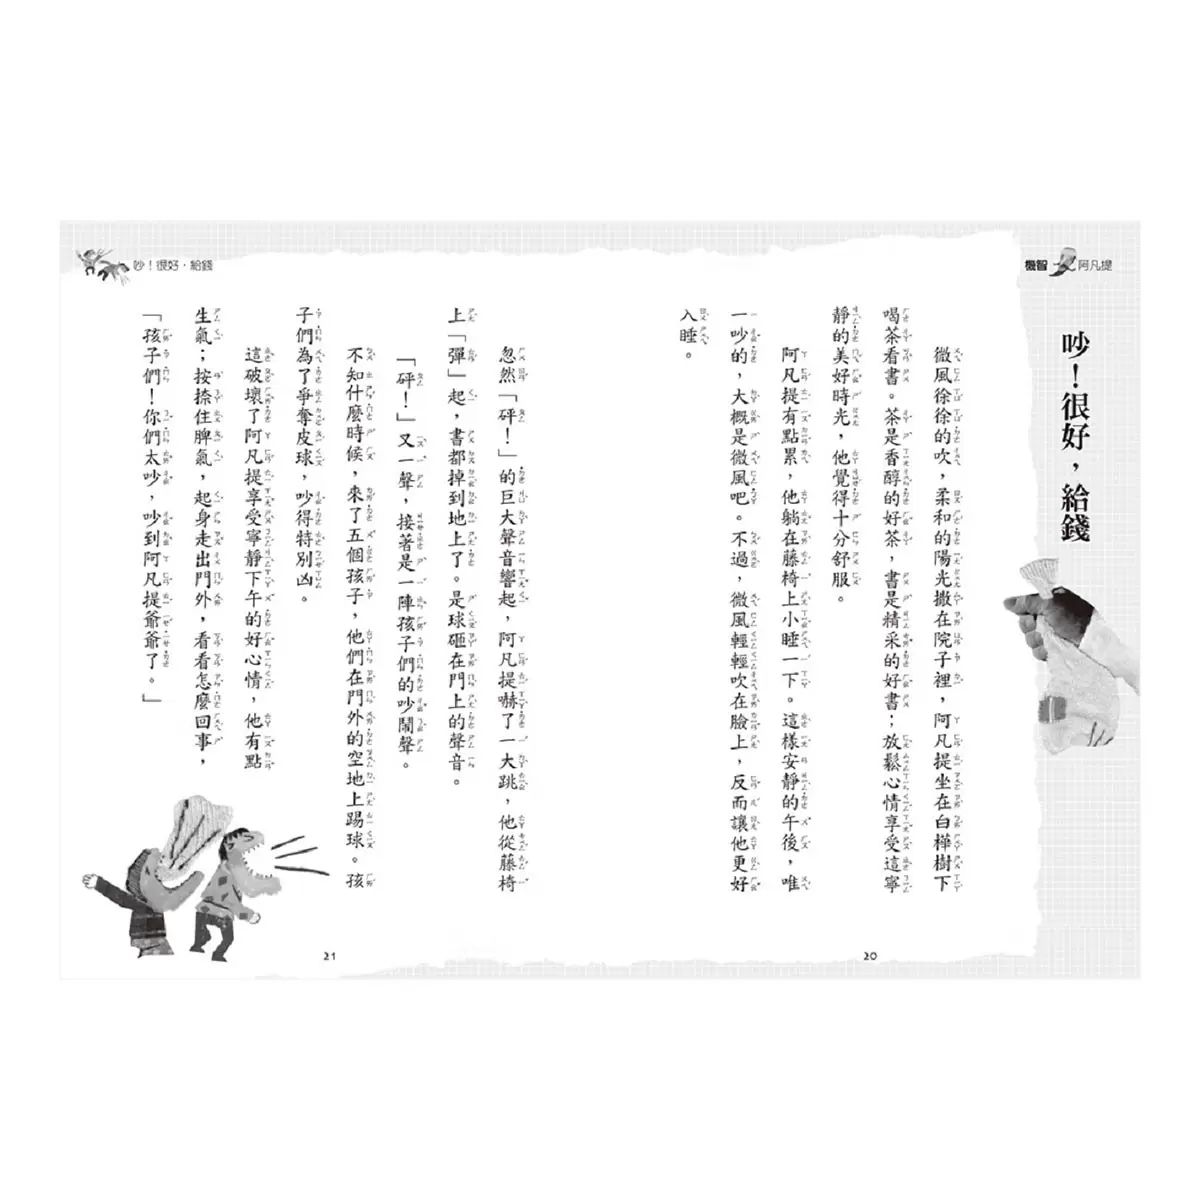 機智 阿凡提
吵！很好，給錢
微風徐徐的吹，柔和的陽光撒在院子裡，阿凡提坐在白樺樹下
喝茶看書。茶是香醇的好茶，書是精采的好書；放鬆心情享受這寧
靜的美好時光，他覺得十分舒服。
阿凡提有點累，他躺在藤椅上小睡一下。這樣安靜的午後，唯
一吵的，大概是微風吧。不過，微風輕輕吹在臉上，反而讓他更好
入睡。
20
吵！很好，給錢
忽然「砰！」的巨大聲音響起，阿凡提嚇了一大跳，他從藤椅
上「彈」起，書都掉到地上了。是球砸在門上的聲音。
「砰！」又一聲，接著是一陣孩子們的吵鬧聲。
不知什麼時候，來了五個孩子，他們在門外的空地上踢球。孩
子們為了爭奪皮球，吵得特別凶。
這破壞了阿凡提享受寧靜下午的好心情，他有點
生氣；按捺住脾氣，起身走出門外，看看怎麼回事，
「孩子們！你們太吵，吵到阿凡提爺爺了。」
21